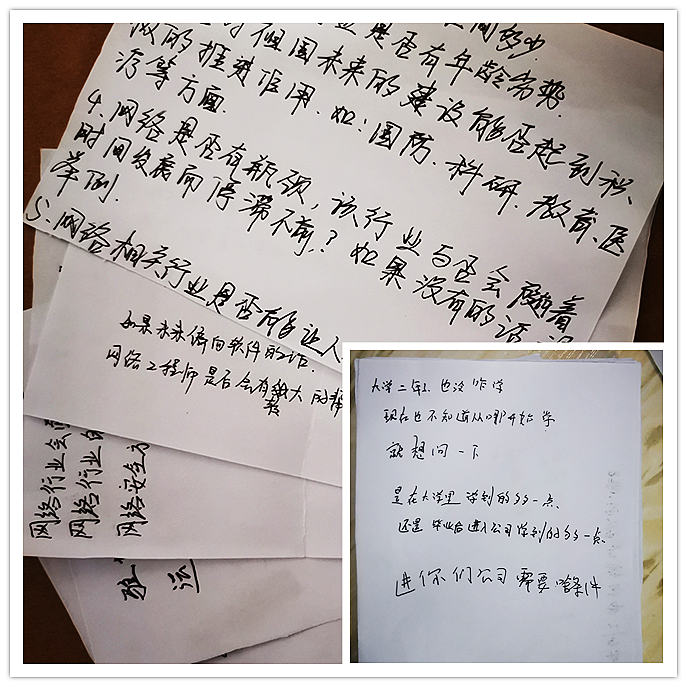 业是否有年龄劣势.
对祖国未来的建设能否起到积
极的推进作用.如:国防.科研.教育、医
疗等方面.
4.网络是否有瓶颈,该行业与否会随着
时间发展而停滞不前.?如果没有的话
举例.
5.网络相关行业是否能够让人
如果未来偏向软件的话.
网络工程师是否会有较大的帮
网络行业会
网络行业的
网络安全方
大学二年了也没咋学
现在也不知道从哪开始学
就想问一下
是在大学里学到的多一点.
还是毕业后进入公司学到的多一点.
进你们公司需要啥条件